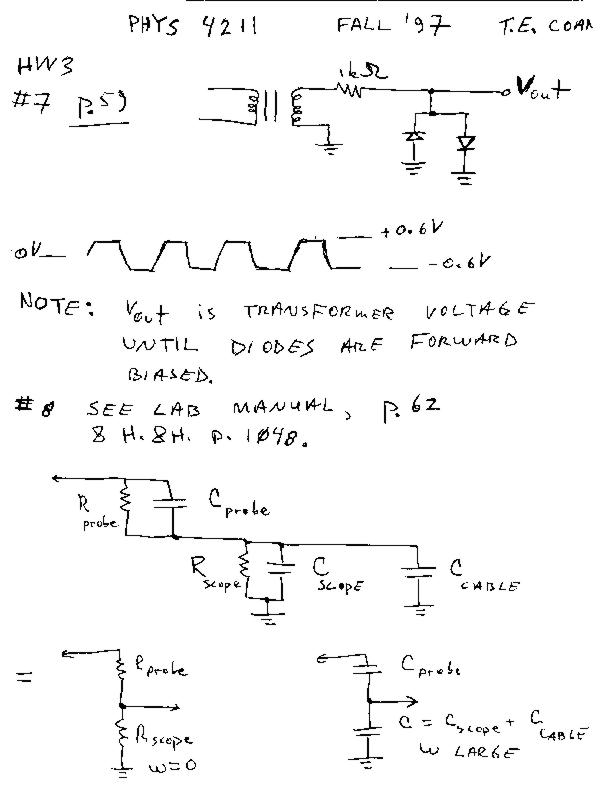 PHYS 4211 FALL '97 T.E. COAN
HW3
#7 p.59
1kΩ
Vout
0V
+0.6V
-0.6V
NOTE: Vout is TRANSFORMER VOLTAGE
UNTIL DIODES ARE FORWARD
BIASED.
#8 SEE LAB MANUAL, p.62
& H.&H. p.1048.
R probe
C probe
R scope
C SCOPE
C CABLE
=
Rprobe
Rscope
ω=0
Cprobe
C = Cscope + C CABLE
ω LARGE